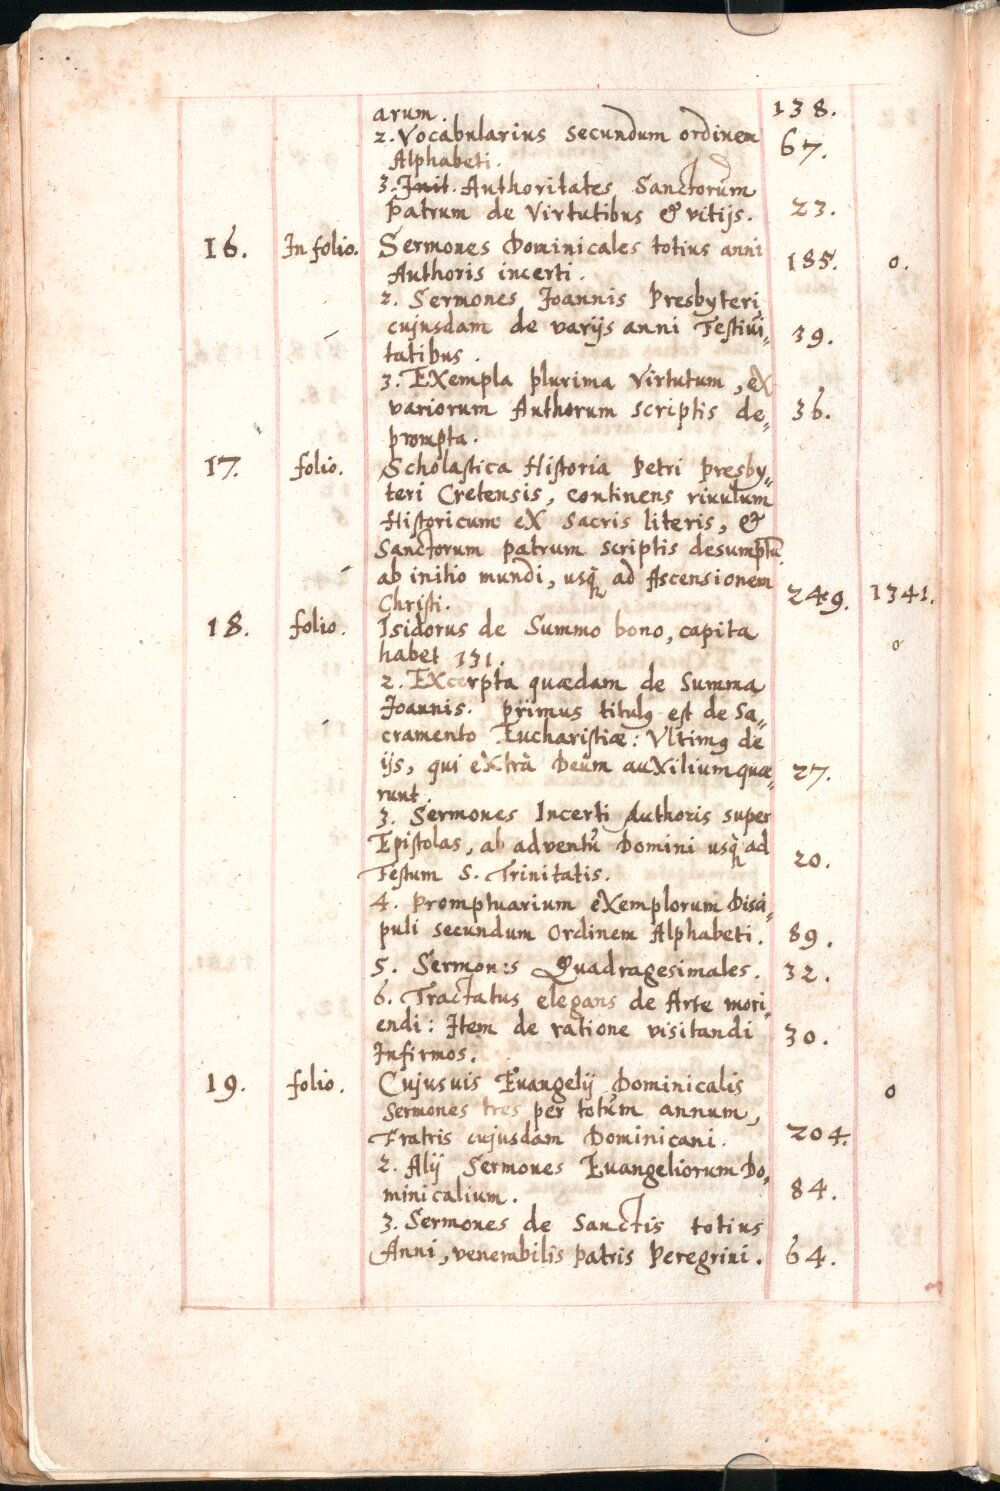 arum. 138.
2. Vocabularius secundum ordinem
Alphabeti. 67.
3. Init. Authoritates Sanctorum
Patrum de Virtutibus & vitijs. 23.
16. In folio. Sermones Dominicales totius anni
Authoris incerti. 185. 0.
2. Sermones Joannis Presbyteri
cujusdam de varijs anni Festiui„ 39.
tatibus.
3. EXempla plurima Virtutum, eX
variorum Authorum scriptis de„ 36.
prompta.
17. folio. Scholastica Historia Petri Presby„
teri Cretensis, continens riuulum
Historicum eX sacris literis, &
Sanctorum patrum scriptis desumptũ
ab initio mundi, usq̃ ad Ascensionem
Christi. 249. 1341.
18. folio. Isidorus de Summo bono, capita
habet 131. 0
2. EXcerpta quædam de Summa
Joannis. primus titulꝰ est de Sa„
cramento Eucharistiæ: Vltimꝰ de
ijs, qui eXtrà Deum auXilium quæ„ 27.
runt.
3. Sermones Incerti Authoris super
Epistolas, ab adventu Domini usq̃ ad
Festum S. Trinitatis. 20.
4. Promptuarium eXemplorum Disci„
puli secundum Ordinem Alphabeti. 89.
5. Sermones Quadragesimales. 32.
6. Tractatus elegans de Arte mori„
endi: Item de ratione visitandi 30.
Infirmos.
19. folio. Cujusuis Euangelij Dominicalis 0
Sermones tres per totum annum,
Fratris cujusdam Dominicani. 204.
2. Alij Sermones Euangeliorum Do„
minicalium. 84.
3. Sermones de Sanctis totius
Anni, venerabilis patris Peregrini. 64.